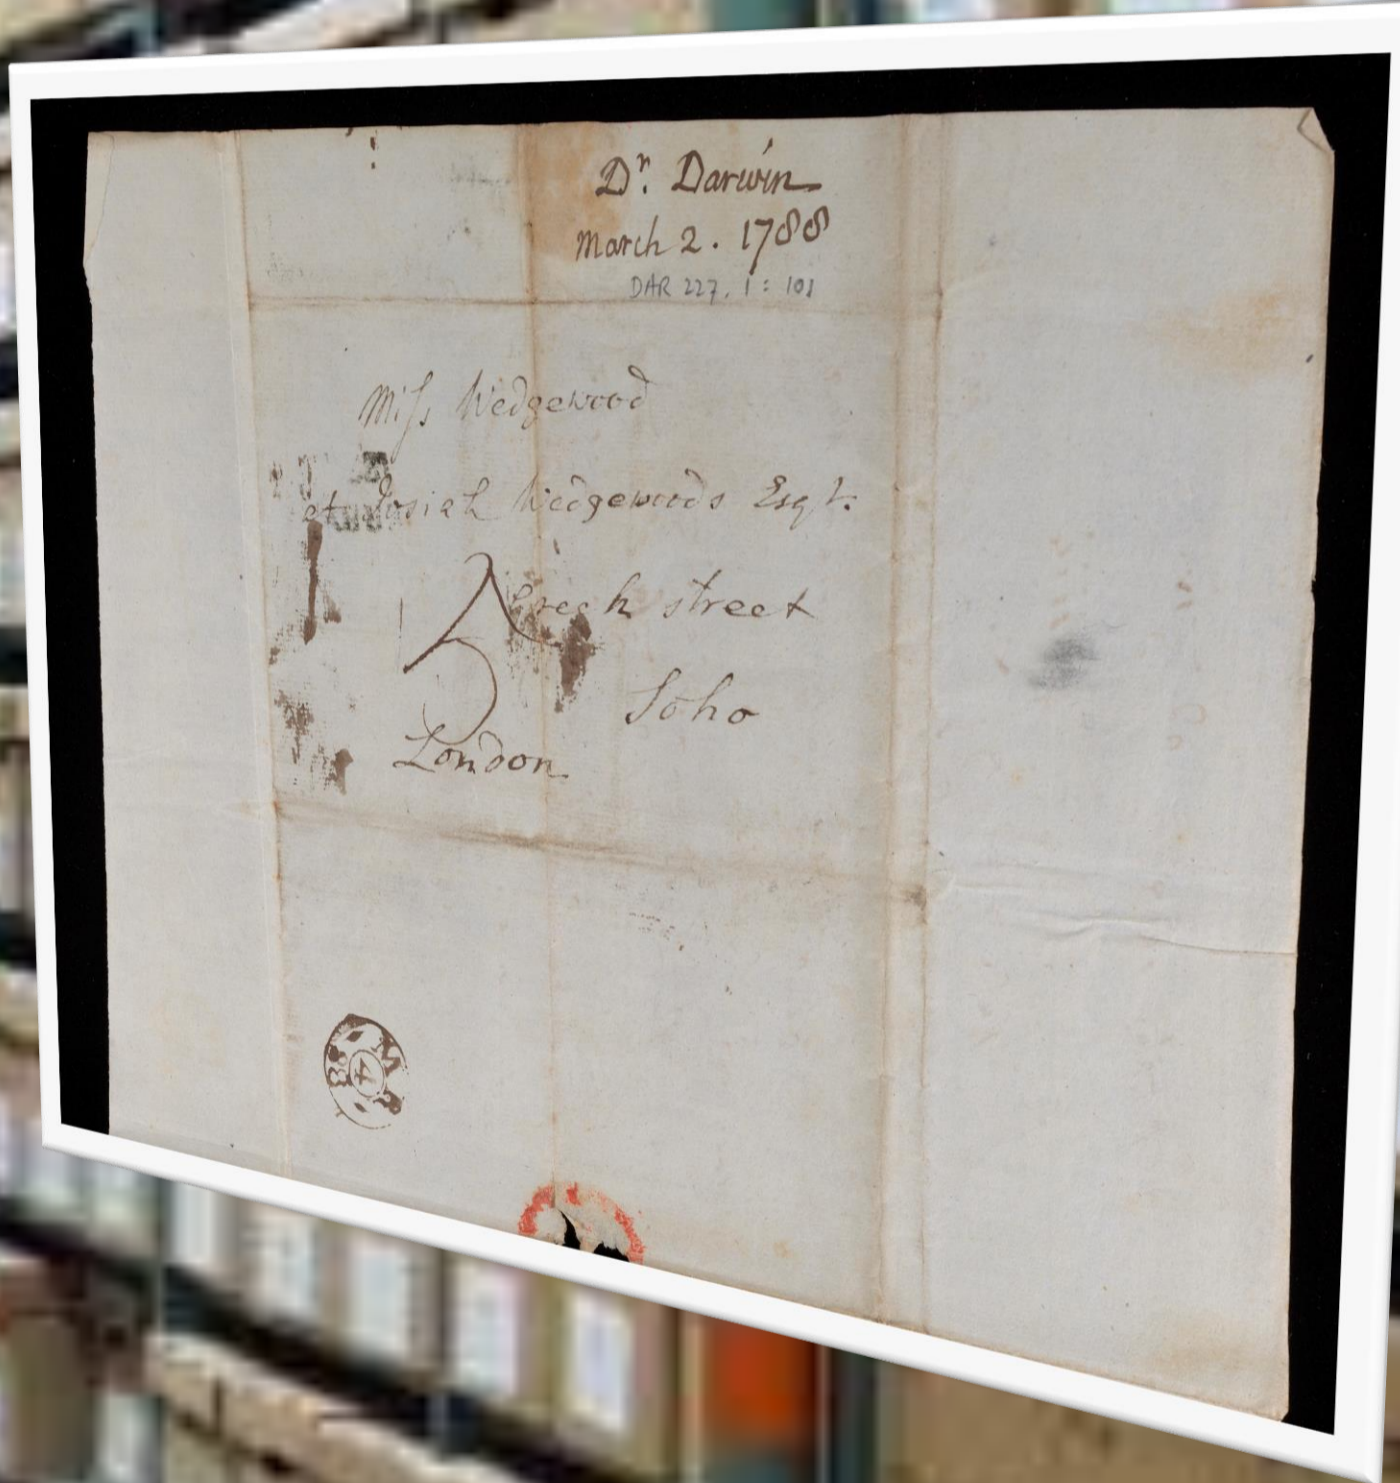 Dr. Darwin
March 2. 1788
DAR 227. 1: 101
Miſs Wedgewood
at Josiah Wedgewoods Esqr.
Greek street
5
Soho
London
MR
4
88